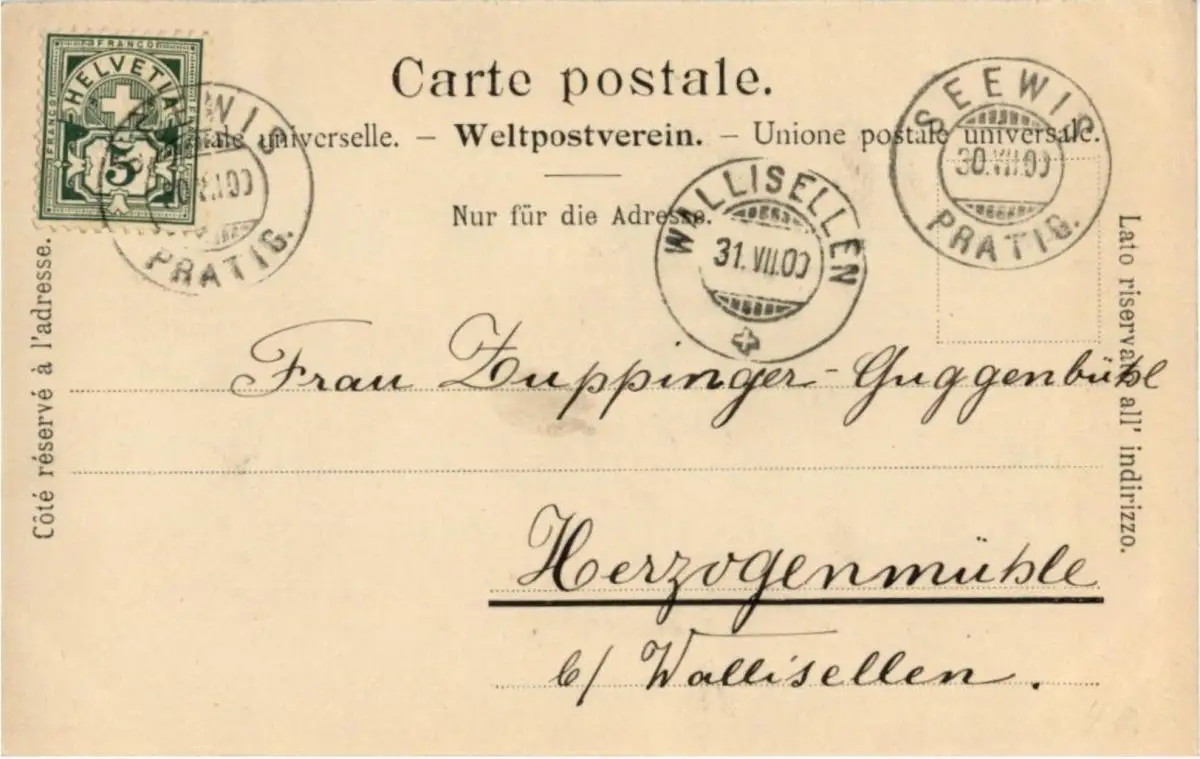 Carte postale.
ale universelle. – Weltpostverein. – Unione postale universale.
Nur für die Adresse.
FRANCO
HELVETIA
FRANCO
5
WIS
PRATIG.
WALLISELLEN
31.VII.00
SEEWIS
30.VII.00
PRATIG.
Côté réservé à l'adresse.
Lato riservato all' indirizzo.
Frau Zuppinger-Guggenbühl
Herzogenmühle
b/ Wallisellen.